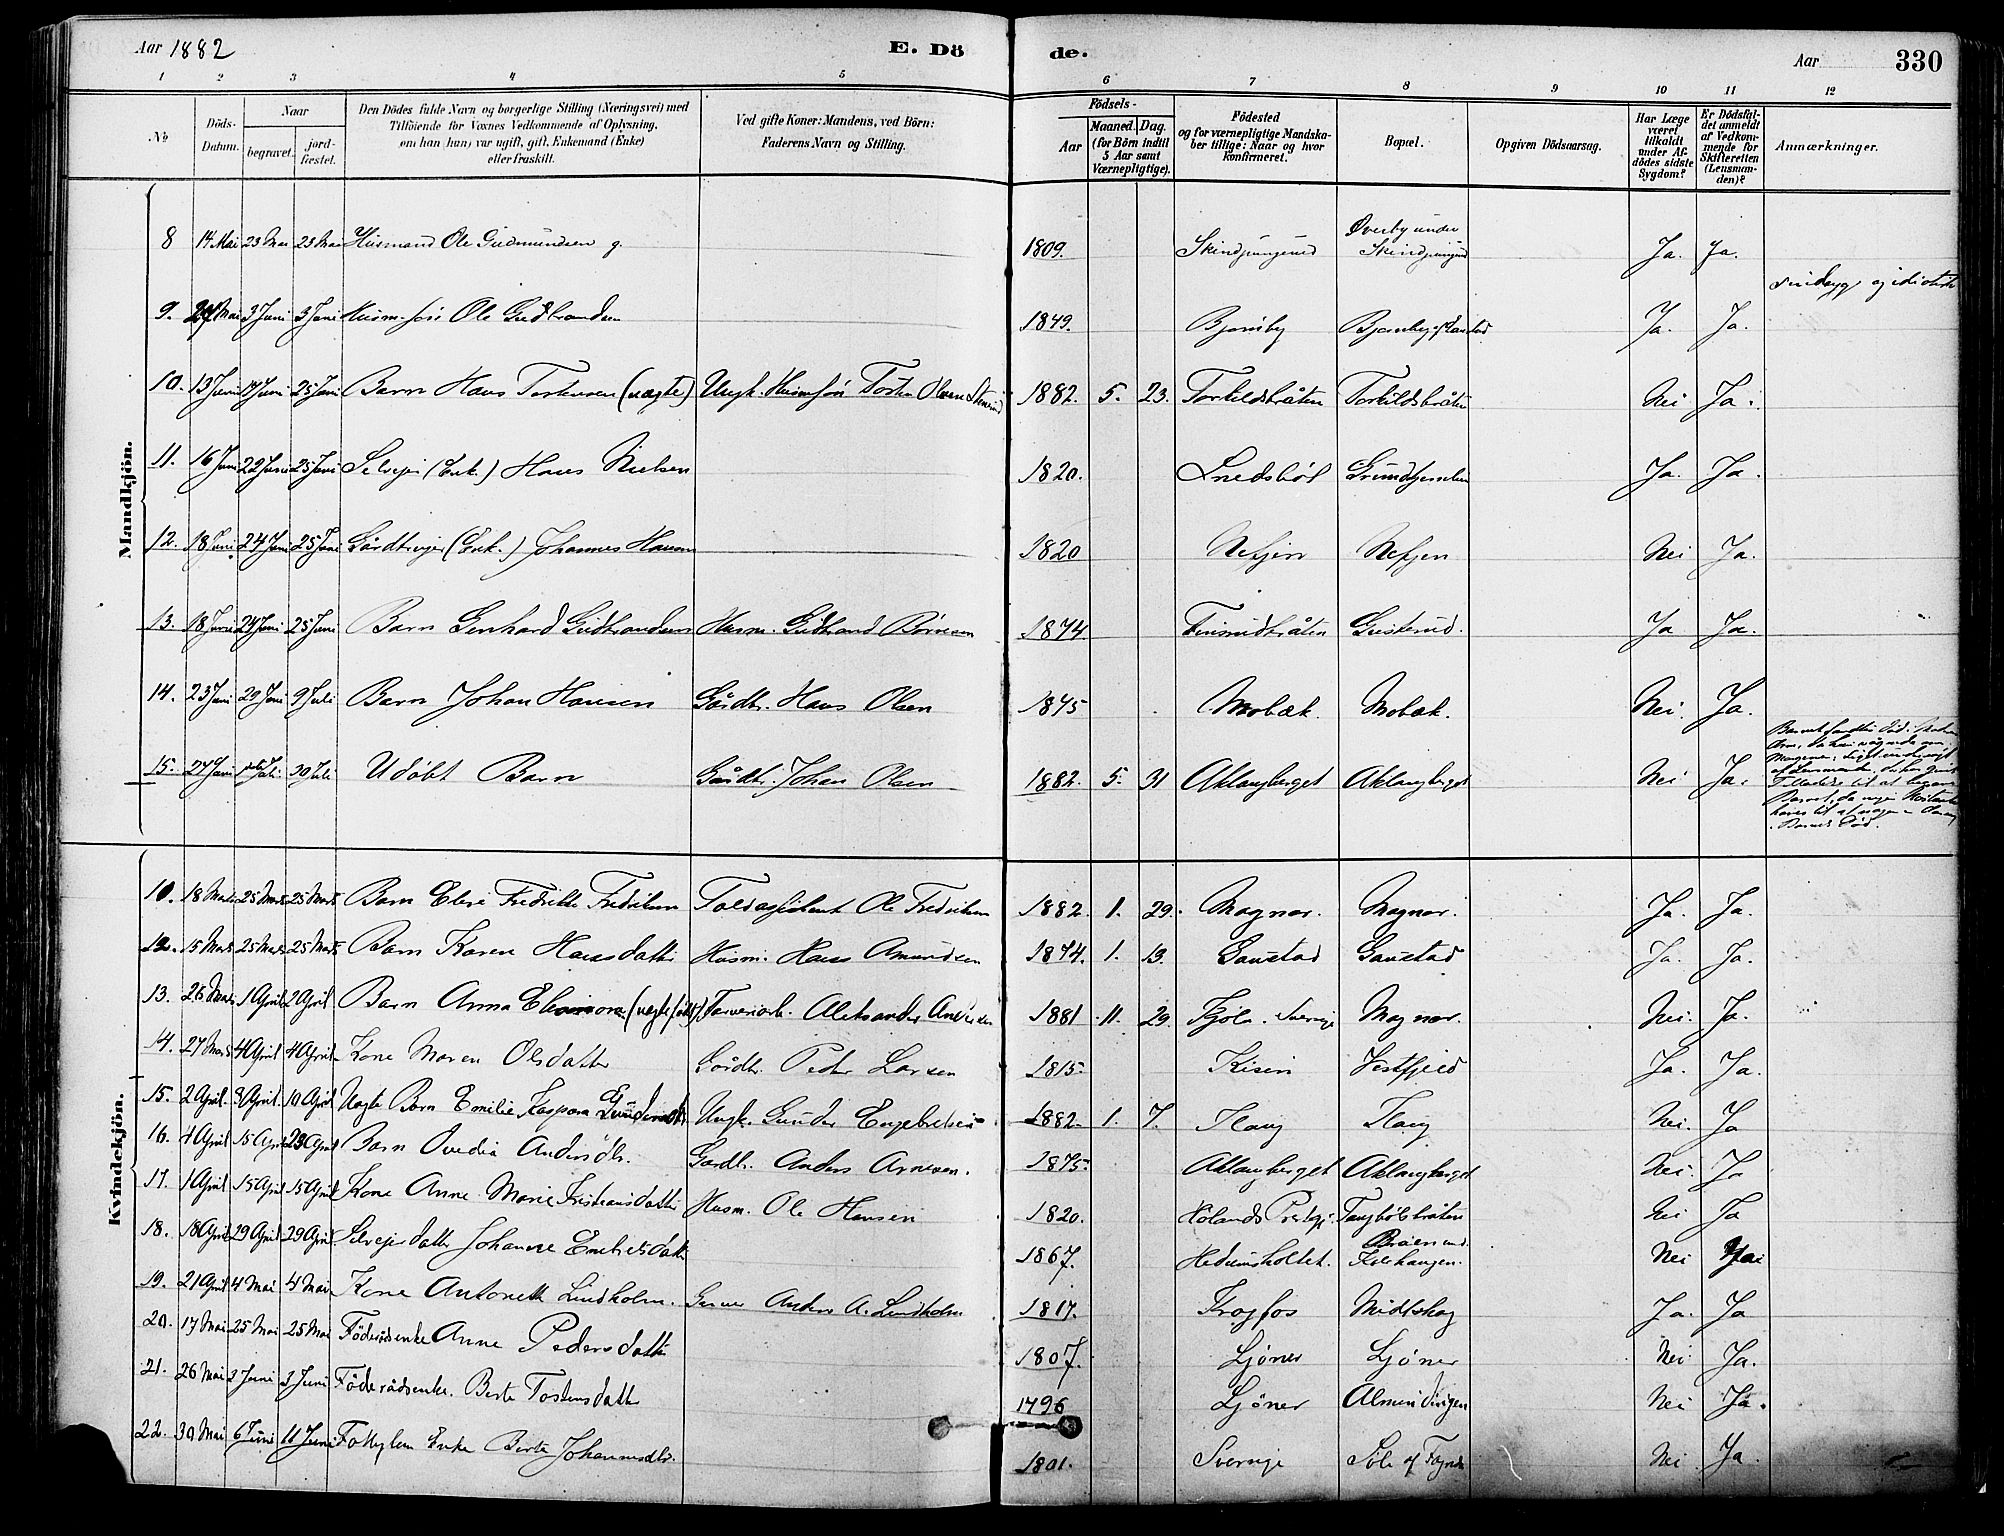 Aar 1882 E. Dö de. Aar 330
1 2 3 4 5 6 7 8 9 10 11 12
No Döds-Datum. Naar begravet. jordfæstet. Den Dödes fulde Navn og borgerlige Stilling (Næringsvei) med Tilföiende for Voxnes Vedkommende af Oplysning, om han (hun) var ugift, gift, Enkemand (Enke) eller fraskilt. Ved gifte Koner: Mandens, ved Börn: Faderens Navn og Stilling. Födsels- Aar Maaned. Dag. (for Börn indtil 5 Aar samt Værnepligtige). Födested og for værnepligtige Mandskaber tillige: Naar og hvor konfirmeret. Bopæl. Opgiven Dödsaarsag. Har Læge været tilkaldt under Afdödes sidste Sygdom? Er Dödsfaldet anmeldt af Vedkommende for Skifteretten (Lensmanden)? Anmærkninger.
Mandkjön.
8 14 Mai 23 Mai 23 Mai Husmand Ole Gudmundsen g. 1809. Skindpungerud Overby under Skindpungrud Ja. Ja.
9. Mai 3 Juni 3 Juni Husm. sön Ole Gudbrandsen 1849. Bjørnby Bjørnby Ja. Ja. sindsyg og idiotisk
10. 13 Juni Juni 25 Juni Barn Hans Torstensen (uægte) Ungk. Husmsön Torsten Olsen 1882. 5. 23. Torkildsbråten Torkildsbråten Nei Ja.
11. 16 Juni 22 Juni 25 Juni Selveier (Enk.) Hans Nielsen 1820. Ja. Ja.
12. 18 Juni 24 Juni 25 Juni Gårdbruger (Enk.) Johannes Hansen 1820 Nei Ja.
13. 18 Juni 24 Juni 25 Juni Barn Gerhard Gudbrandsen Husm. Gudbrand 1874 Gusterud. Ja Ja.
14. 23 Juni 29 Juni 9 Juli Barn Johan Hansen Gårdbr. Hans Olsen 1875 Mobæk. Mobæk. Nei. Ja.
15. 27 Juni Juli 30 Juli Udøbt Barn Gårdbr. Johan Olsen 1882. 5. 31 Aklangberget Aklangberget Nei Ja. Barnet fandtes død
Kvindekjön.
10. 18 Marts 25 Marts 25 Marts Barn Fredrikke Fredriksen Toldassistent Ole Fredriksen 1882. 1. 29. Magnor. Magnor. Ja. Ja.
12. 15 Marts 25 Marts 25 Marts Barn Karen Hansdatter Husm. Hans Amundsen 1874. 1. 13. Gaustad Gaustad Ja. Ja.
13. 26 Marts 1 April 2 April Barn Anna Eleonora (uægte født) Aleksander Andersen 1881 11. 29. Sverige Magnor. Nei. Ja.
14. 27 Marts 4 April 4 April Kone Maren Olsdatter Gårdbr. Peder Larsen 1815. Kisen Vestfjeld Ja. Ja.
15. 2 April 9 April 10 April Uægte Barn Emilie Kaspara Gundersdtr. Ungk. Gunder Engebretsen 1882. 1. 7. Nei. Ja
16. 4 April 15 April 23 April Barn Ovedia Andersdtr. Gårdbr. Anders Arnesen. 1875. Aklangberget Aklangberget Nei. Ja
17. 1 April 15 April 15 April Kone Anne Marie Kristiansdatter Husm. Ole Hansen 1820. Hølands Prestgj. Nei Ja
18. 18 April 29 April 29 April Selveierdatter Johanne Embretsdatter 1867. Hedumsholtet. Nei Ja
19. 21 April 4 Mai 4 Mai Kone Antonette Lindholm. Garver Anders A. Lindholm 1817. Frogfos Midtskog Ja. Ja
20. 17 Mai 25 Mai 25 Mai Föderådsenke Anne Pedersdatter 1807. Ljøner Ljøner Nei Ja.
21. 26 Mai 3 Juni 3 Juni Föderådsenke. Berte Torstensdatter 1796 Ljøner Almindingen Nei Ja.
22. 30 Mai 6 Juni 11 Juni Enke Berte Johannesdtr. 1801. Sverige Nei Ja.